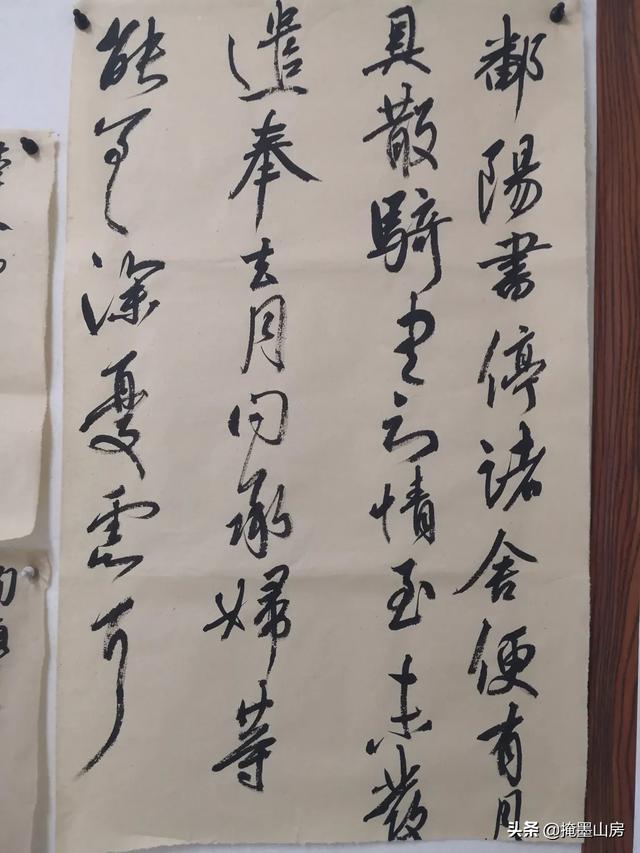 鄱陽書停諸舍便有月
具散騎云情至未發
遣奉去月问承婦等
能深憂慮可
头条 @掩墨山房